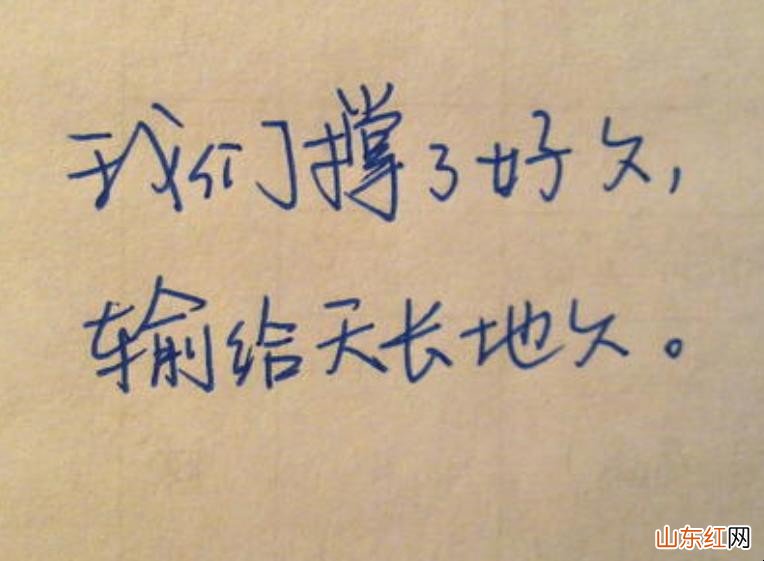 我们撑了好久,
输给天长地久。
山东红网